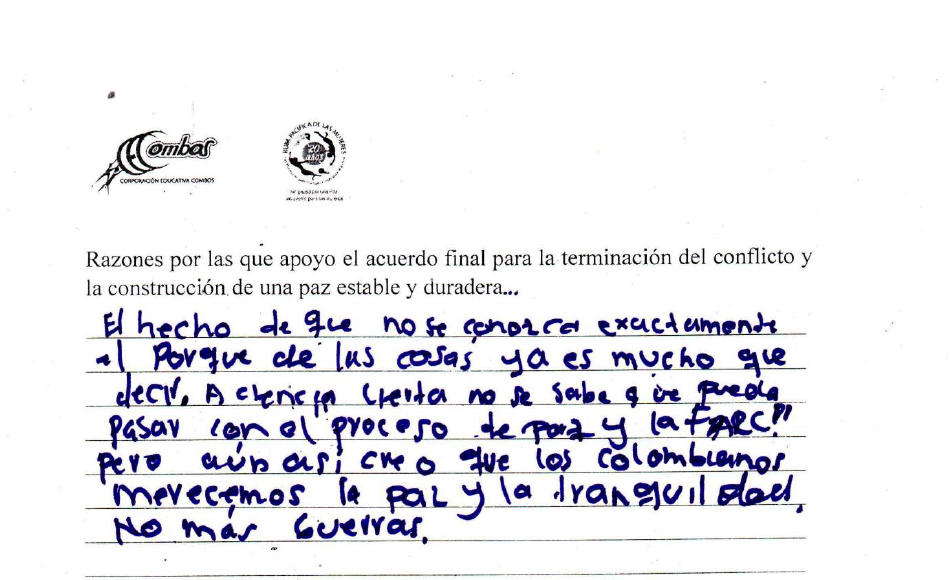 Combos
CORPORACIÓN EDUCATIVA COMBOS
RUTA PACÍFICA DE LAS MUJERES
20 años
Razones por las que apoyo el acuerdo final para la terminación del conflicto y
la construcción de una paz estable y duradera...
El hecho de que no se conozca exactamente
el Porque de las cosas ya es mucho que
decir. A ciencia cierta no se sabe que pueda
pasar con el proceso de paz y la FARC!!
pero aún así creo que los colombianos
merecemos la paz y la tranquilidad.
No más Guerras.